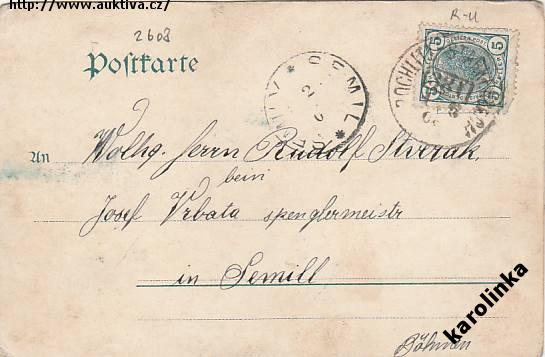 www.auktiva.cz/
R-U
2608
Postkarte
5 5
SEMIL
ROCHLITZ
An Wolhg. Herrn Rudolf Stverak,
beim
Josef Vrbata spenglermeistr
in Semill
Böhmen
karolinka